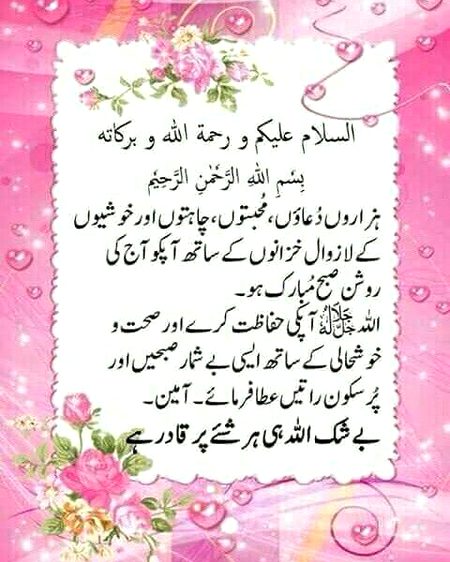 السلام علیکم و رحمة الله و برکاته
بِسْمِ اللهِ الرَّحْمٰنِ الرَّحِيْمِ
ہزاروں دُعاؤں، مُحبتوں، چاہتوں اور خوشیوں
کے لازوال خزانوں کے ساتھ آپکو آج کی
روشن صبح مُبارک ہو۔
اللہ ﷻ آپکی حفاظت کرے اور صحت و
خوشحالی کے ساتھ ایسی بے شمار صبحیں اور
پُرسکون راتیں عطا فرمائے۔ آمین۔
بے شک اللہ ہی ہر شئے پر قادر ہے